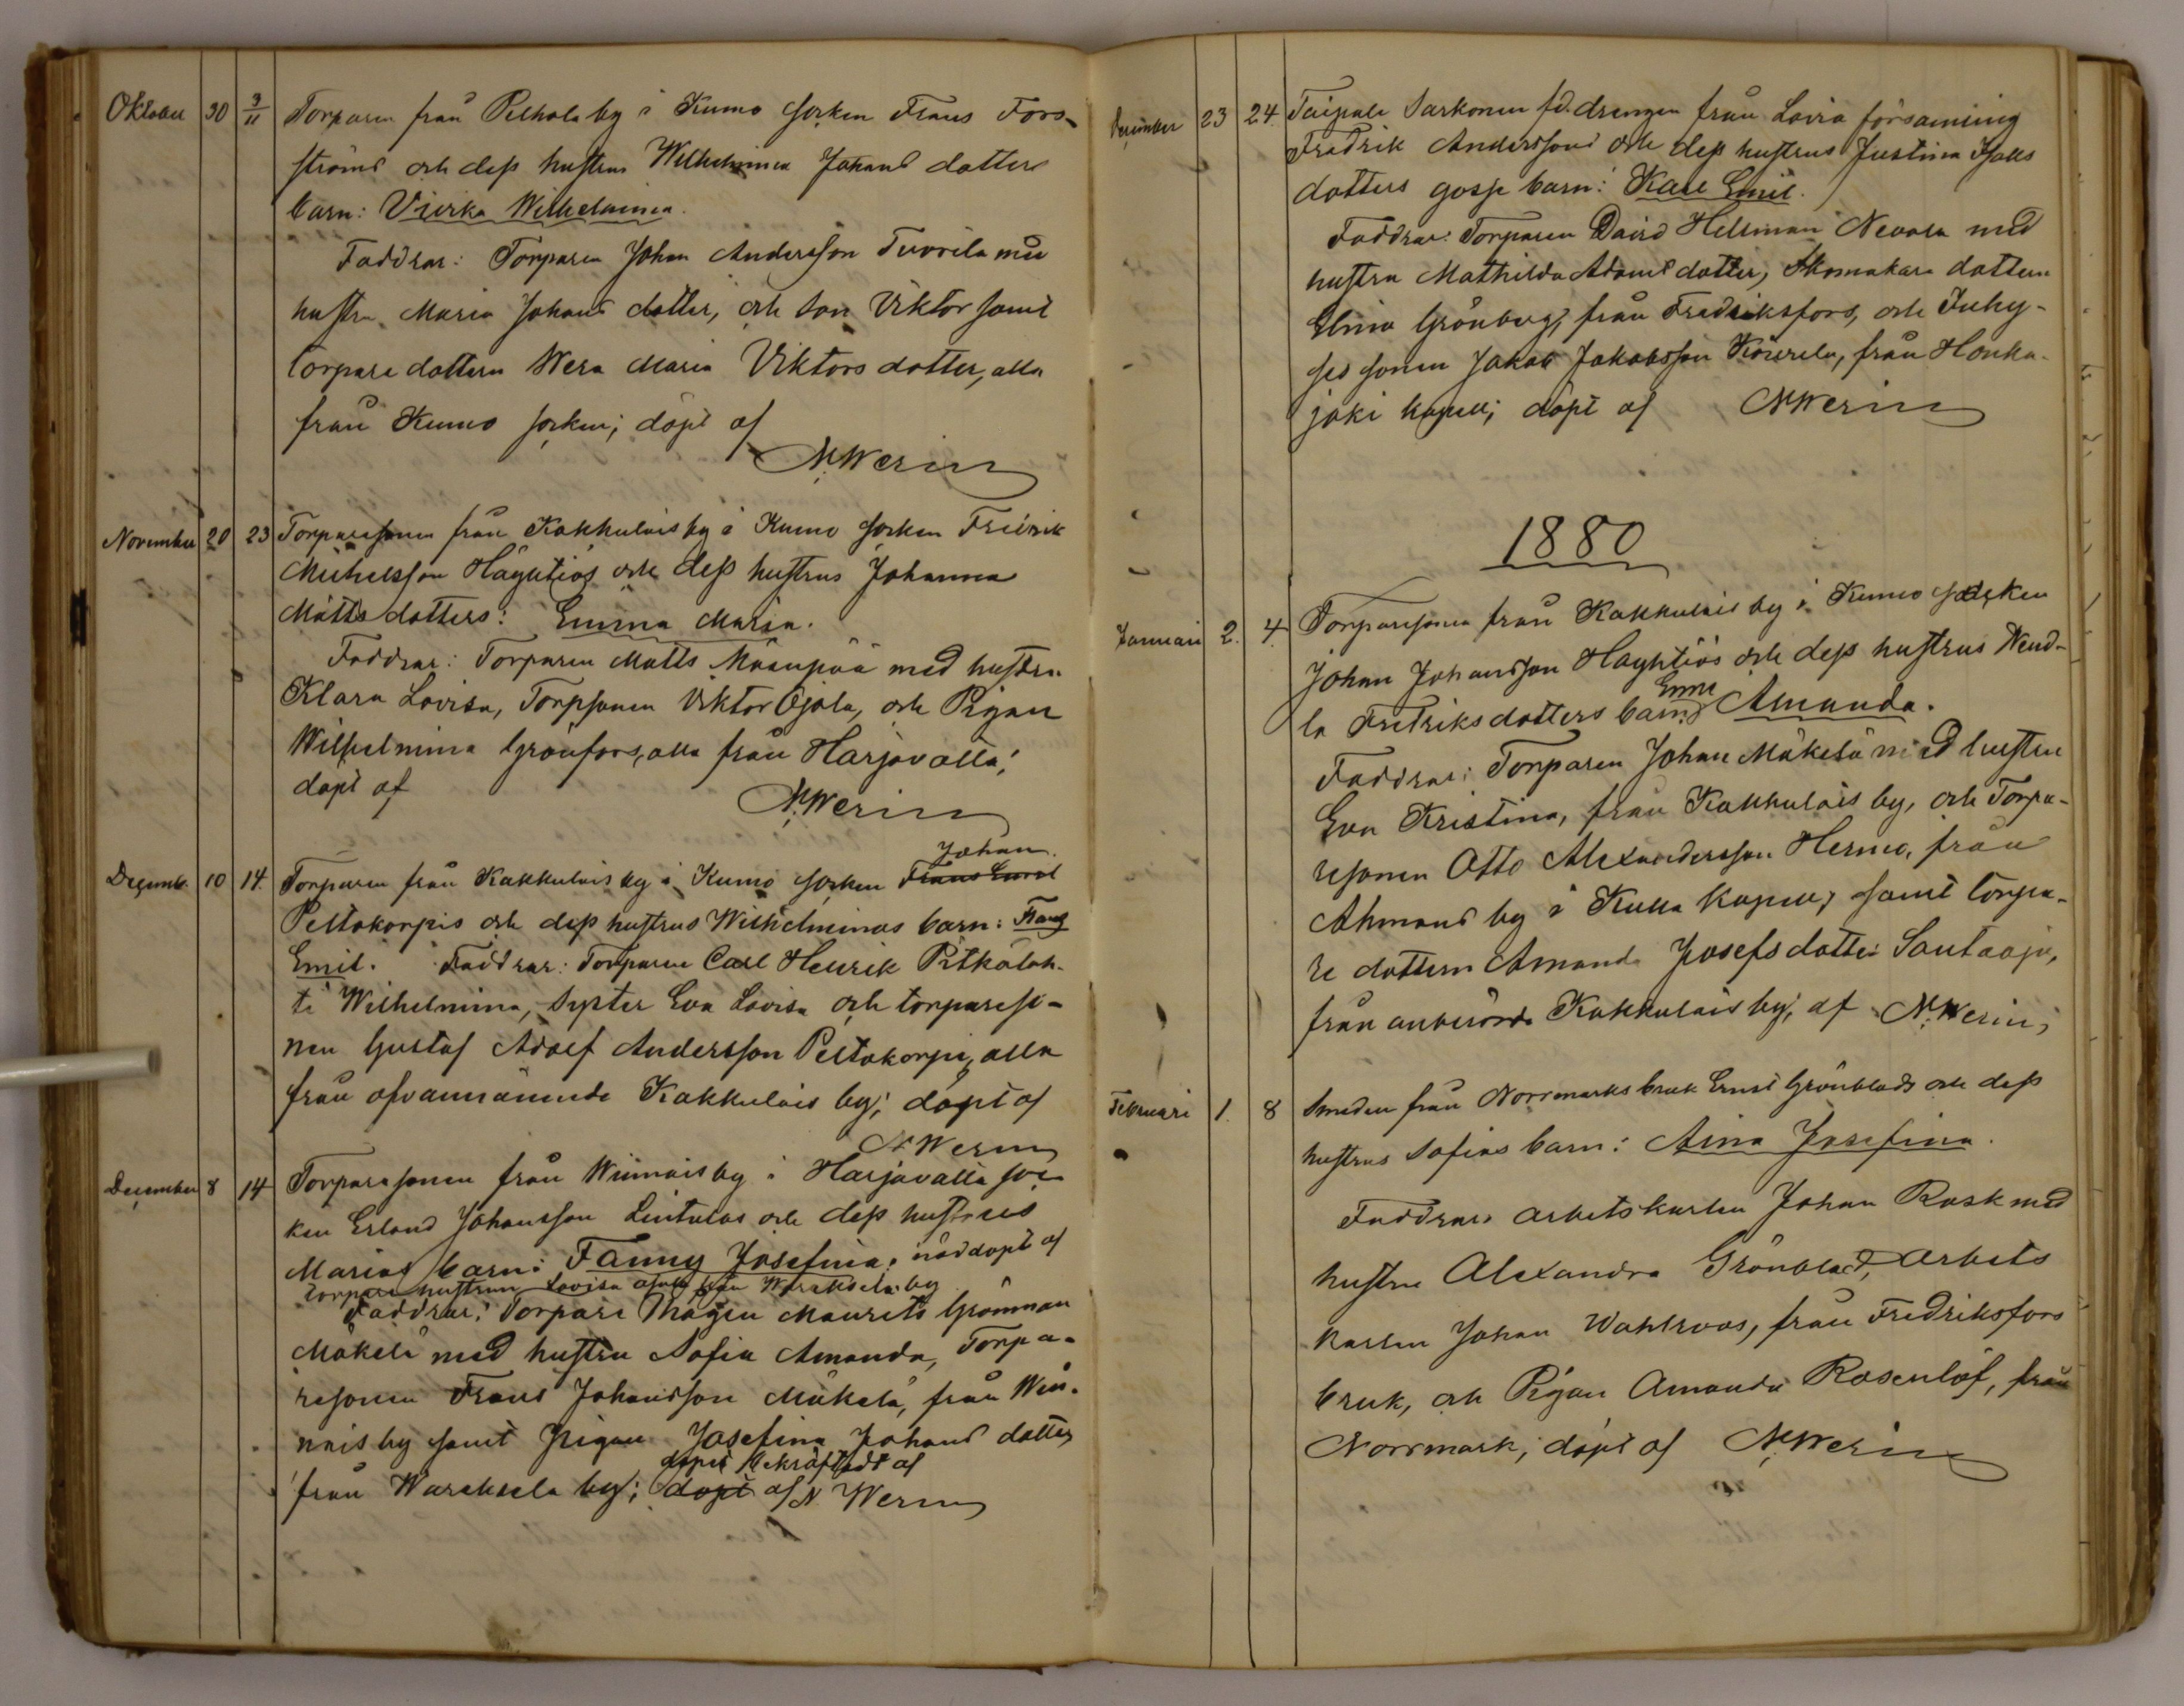 Oktober 30 3/11 Torparen från Pelhola by i Kumo socken Frans Fors-
ströms och dess hustrus Wilhelmina Johans dotters
barn: Vierka Wilhelmina.
Faddrar: Torparen Johan Andersson Tuorila med
hustru Maria Johans dotter, och son Viktor samt
torpare dottern Wera Maria Viktors dotter, alla
från Kumo socken; döpt af
N. Werin
November 20 23 Torparesonen från Kakkulais by i Kumo socken Fredrik
Michelsson Häyhtiös och dess hustrus Johanna
Matts dotters: Emma Maria.
Faddrar: Torparen Matts Mäenpää med hustru
Klara Lovisa, Torpsonen Viktor Ojala, och Pigan
Wilhelmina Grönfors, alla från Harjavalla;
döpt af
N. Werin
Johan
Decemb. 10 14. Torparen från Kakkulais by i Kumo socken Frans Emil
Peltokorpis och dess hustrus Wilhelminas barn: Frans
Emil. Faddrar: Torparen Carl Henrik Pitkälah-
ti Wilhelmina, syster Eva Lovisa och torpareso-
nen Gustaf Adolf Andersson Peltokorpi, alla
från ofvannämnde Kakkulais by; döpt af
N. Werin
December 8 14 Torparesonen från Wiinais by i Harjavalla soc
ken Erland Johansson Lintulas och dess hustrus
Marias barn: Fanny Josefina; nöddöpt af
torpare hustrun Lovisa från Waraksela by
Faddrar: Torpare Mågen Maurits Grönman
Mäkelä med hustru Sofia Amanda, Torpa-
resonen Frans Johansson Mäkelä, från Wii-
nais by samt Pigan Josefina Johans dotter
dopet bekräftadt af
från Waraksela by; döpt af N Werin
December 23 24. Taipale Sarkonen fd. drengen från Lavia församling
Fredrik Anderssons och dess hustrus Justina Isaks
dotters gosse barn: Karl Emil.
Faddrar: Torparen David Hellman Nevara med
hustru Mathilda Adams dotter, Skomakare dottern
Elina Grönberg, från Fredriksfors, och Inhy-
ses sonen Jakob Jakobsson Kourela, från Honka-
joki kapell; döpt af N Werin
1880
Januari 2. 4. Torparesonen från Kakkulais by i Kumo socken
Johan Johansson Häyhtiös och dess hustrus Wend-
Emma
la Fredriksdotters barn: Amanda.
Faddrar: Torparen Johan Mäkelä med hustru
Eva Kristina, från Kakkulais by, och Torpa-
resonen Otto Alexandersson Hermo, från
Ahmans by i Kulla Kapell, samt torpa-
re dottern Amanda Josefs dotter Santaoja,
från anberörde Kakkulais by; af N. Werin;
Februari 1. 8 Smeden från Norrmarks bruk Ernst Grönblads och dess
hustrus Sofias barn: Aina Josefina.
Faddrar: arbetskarlen Johan Rask med
hustru Alexandra Grönblad, arbets
karlen Johan Wahlroos, från Fredriksfors
bruk, och Pigan Amanda Rosenlöf, från
Norrmark; döpt af N. Werin